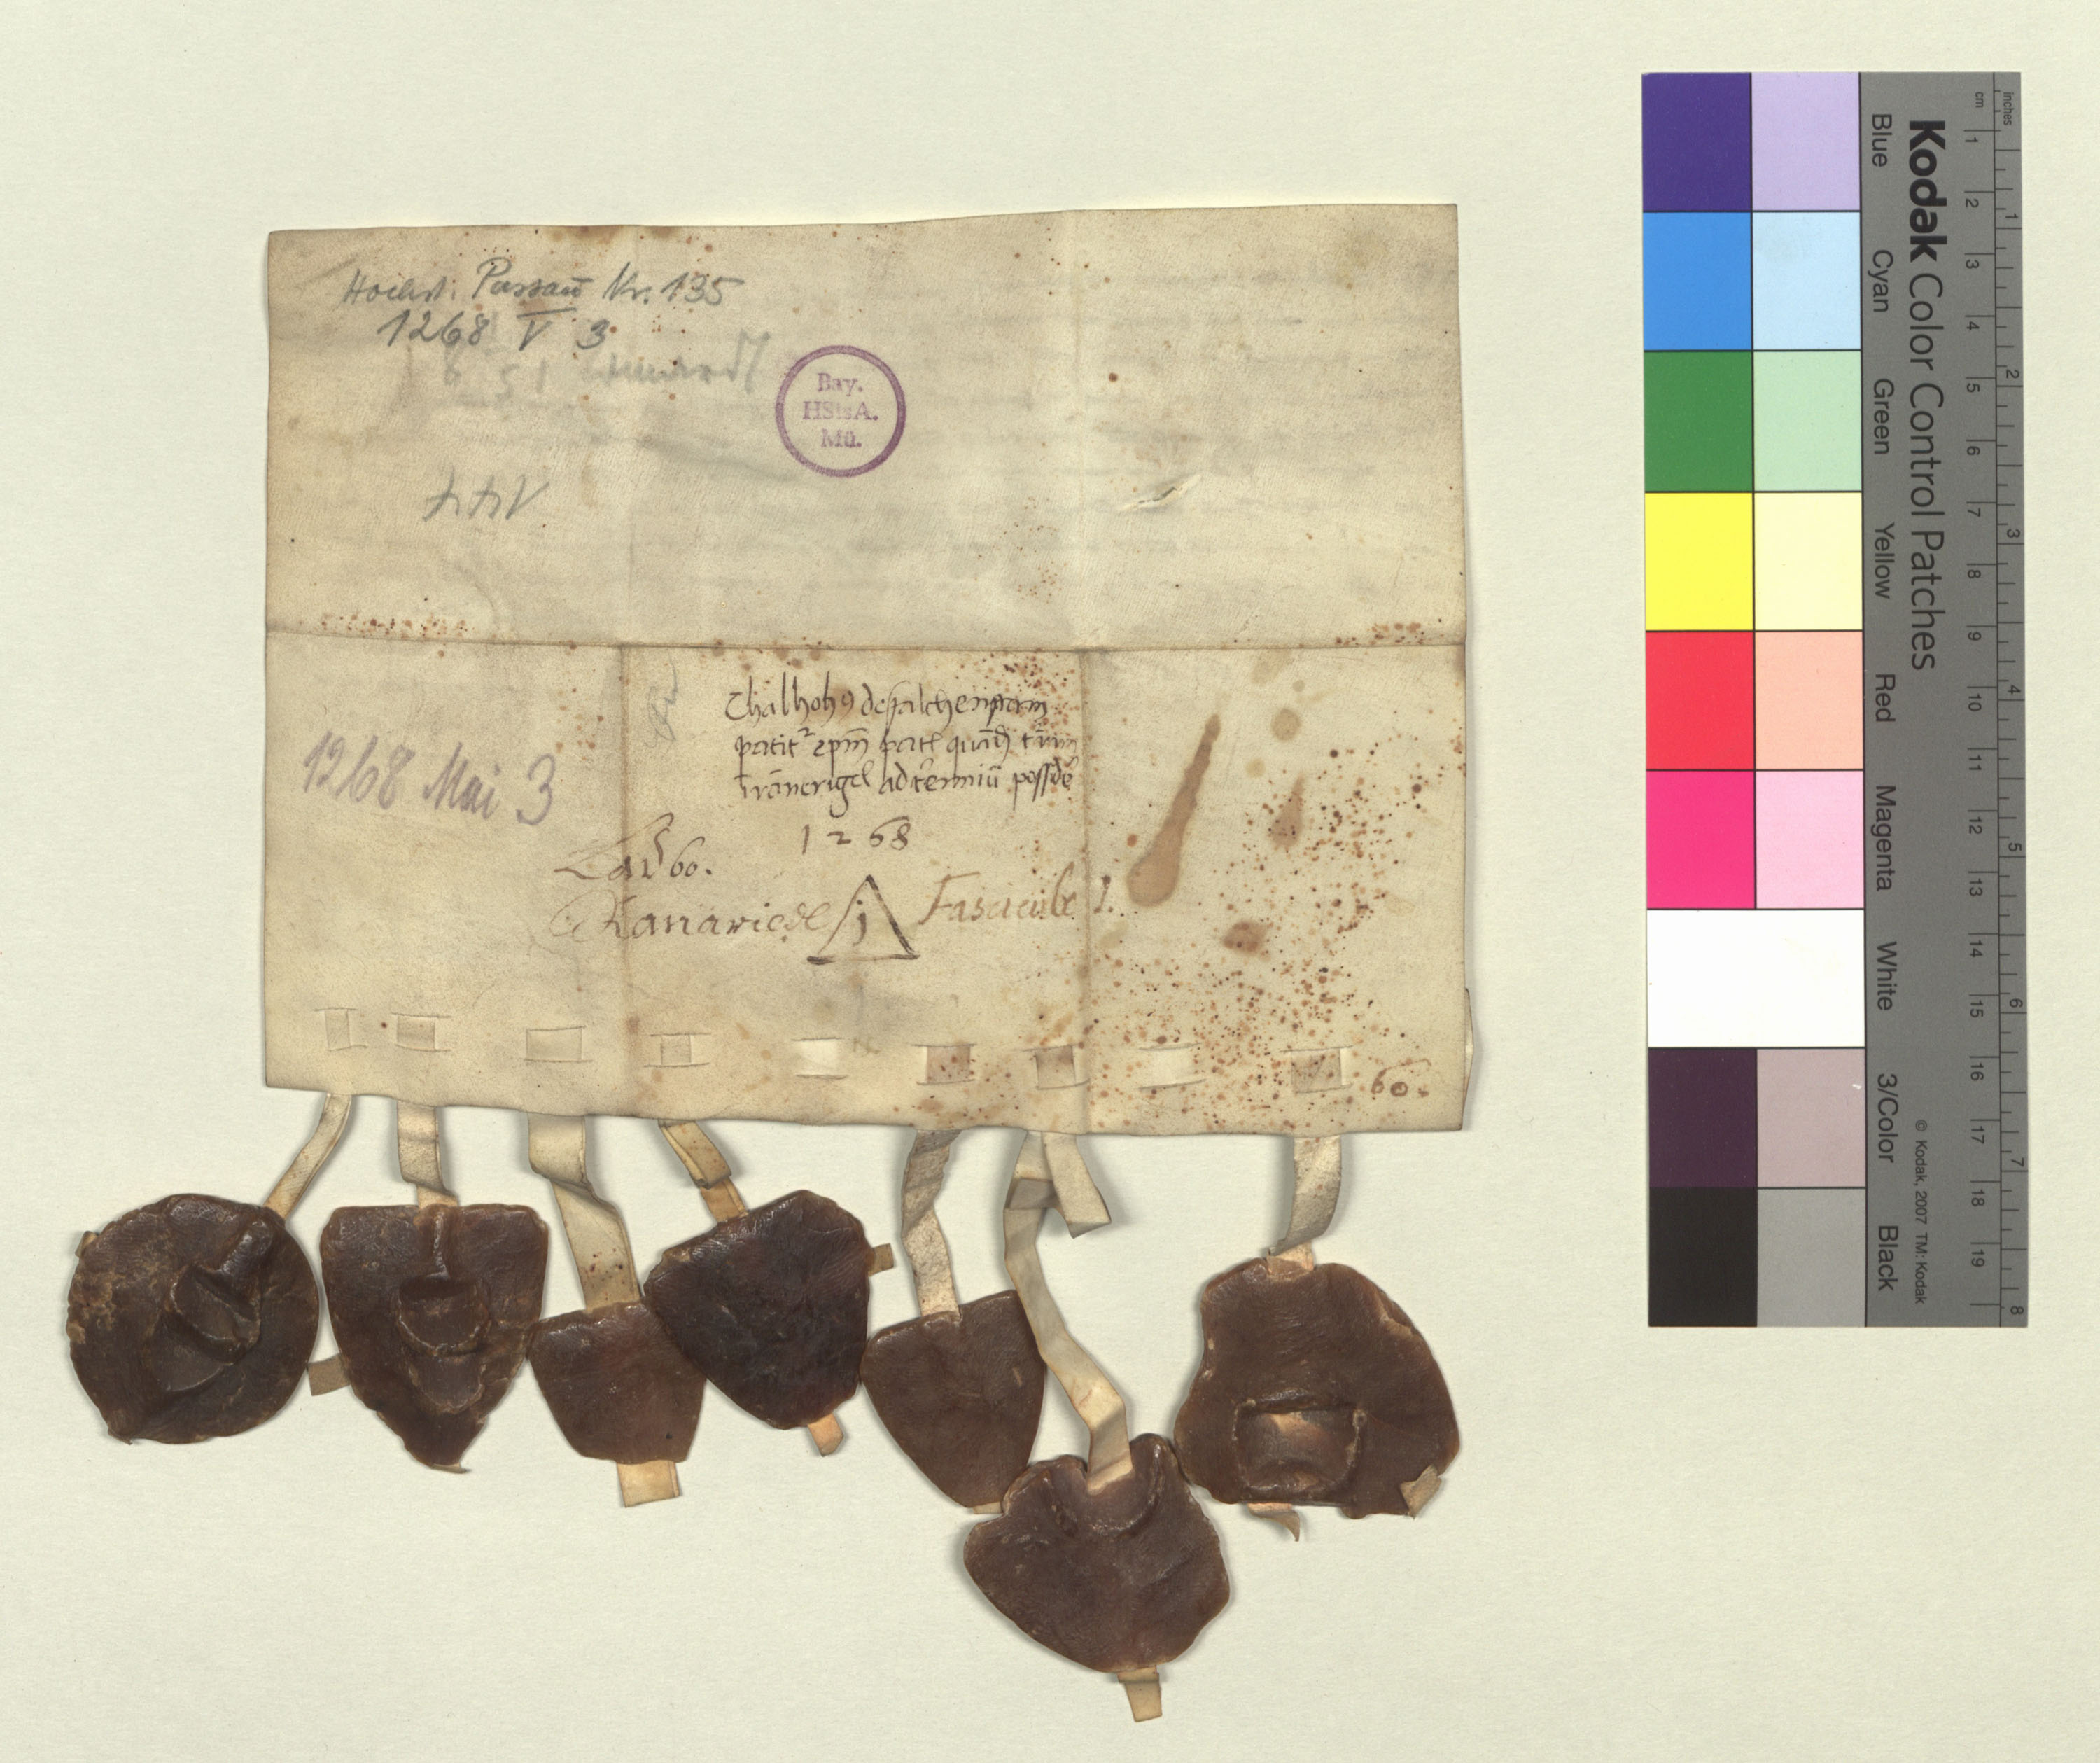 Hochst. Passau Nr. 135
1268 V 3
Bay.
HStsA.
Mü.
144
1268 Mai 3
Chalhohꝰ de falchenparm
patit² epm̄ pat
ad termiū possidē
1268
Lad 60.
Ranariedl j Fascicule 1.
60.
Kodak Color Control Patches
Blue Cyan Green Yellow Red Magenta White 3/Color Black
© Kodak, 2007 TM: Kodak
cm 1 2 3 4 5 6 7 8 9 10 11 12 13 14 15 16 17 18 19
inches 1 2 3 4 5 6 7 8